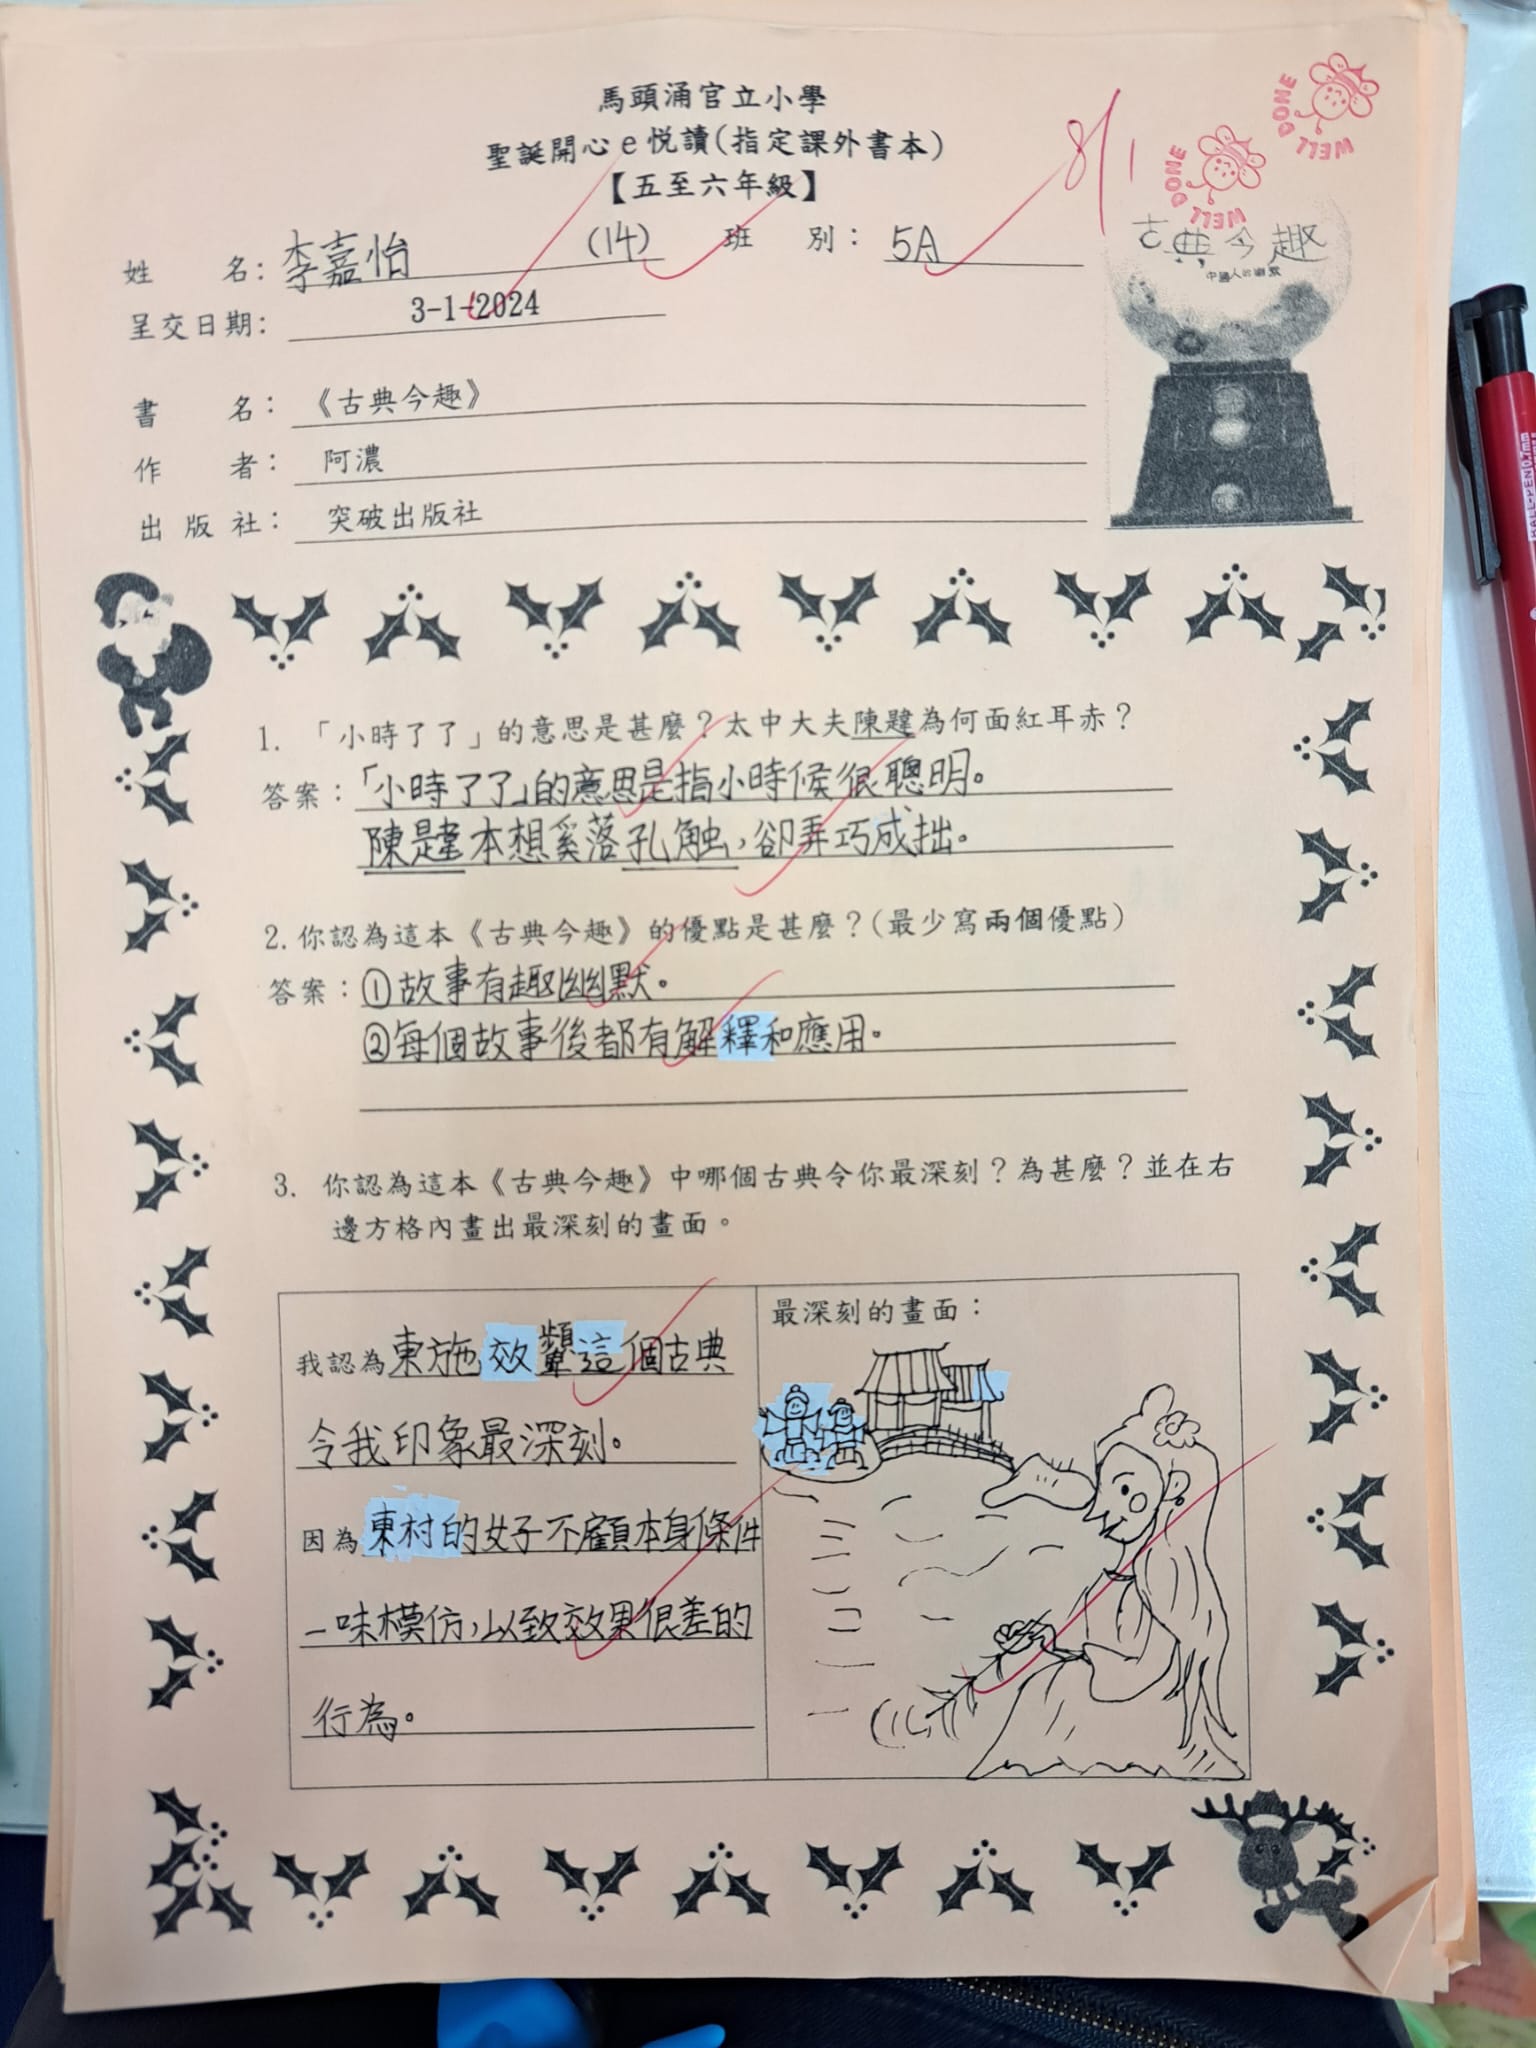 馬頭涌官立小學
聖誕開心e悅讀(指定課外書本)
【五至六年級】
8/1
WELL DONE
WELL DONE
古典今趣
中國人的幽默
姓 名: 李嘉怡 (14) 班 別: 5A
呈交日期: 3-1-2024
書 名: 《古典今趣》
作 者: 阿濃
出 版 社: 突破出版社
1. 「小時了了」的意思是甚麼?太中大夫陳韙為何面紅耳赤?
答案:「小時了了」的意思是指小時候很聰明。
陳韙本想奚落孔融,卻弄巧成拙。
2. 你認為這本《古典今趣》的優點是甚麼?(最少寫兩個優點)
答案:①故事有趣幽默。
②每個故事後都有解釋和應用。
3. 你認為這本《古典今趣》中哪個古典令你最深刻?為甚麼?並在右
邊方格內畫出最深刻的畫面。
我認為東施效顰這個古典
令我印象最深刻。
因為東村的女子不顧本身條件
一味模仿,以致效果很差的
行為。
最深刻的畫面: